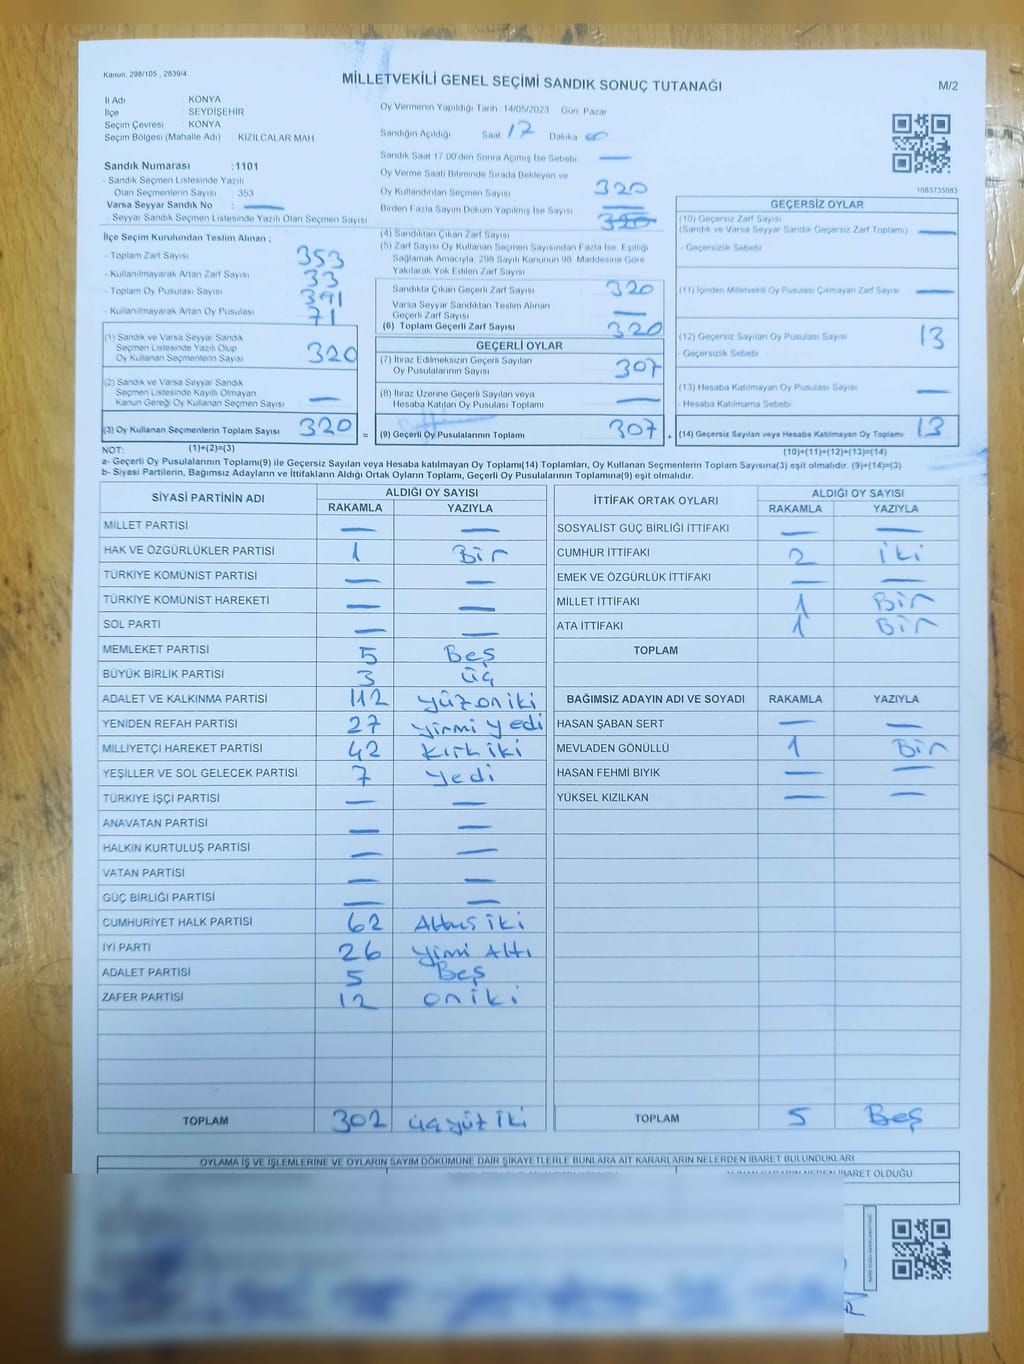 Kanun. 298/105 , 2839/4
MİLLETVEKİLİ GENEL SEÇİMİ SANDIK SONUÇ TUTANAĞI
M/2
İl Adı KONYA
İlçe SEYDİŞEHİR
Seçim Çevresi KONYA
Seçim Bölgesi (Mahalle Adı) KIZILCALAR MAH
Sandık Numarası :1101
- Sandık Seçmen Listesinde Yazılı
Olan Seçmenlerin Sayısı : 353
Varsa Seyyar Sandık No : —
- Seyyar Sandık Seçmen Listesinde Yazılı Olan Seçmen Sayısı
İlçe Seçim Kurulundan Teslim Alınan ;
- Toplam Zarf Sayısı 353
- Kullanılmayarak Artan Zarf Sayısı 33
- Toplam Oy Pusulası Sayısı 391
- Kullanılmayarak Artan Oy Pusulası 71
(1) Sandık ve Varsa Seyyar Sandık
Seçmen Listesinde Yazılı Olup
Oy Kullanan Seçmenlerin Sayısı 320
(2) Sandık ve Varsa Seyyar Sandık
Seçmen Listesinde Kayıtlı Olmayan
Kanun Gereği Oy Kullanan Seçmen Sayısı —
(3) Oy Kullanan Seçmenlerin Toplam Sayısı 320
Oy Vermenin Yapıldığı Tarih 14/05/2023 Gün Pazar
Sandığın Açıldığı Saat 17 Dakika 00
Sandık Saat 17.00'den Sonra Açılmış İse Sebebi —
Oy Verme Saati Bitiminde Sırada Bekleyen ve
Oy Kullandırılan Seçmen Sayısı 320
Birden Fazla Sayım Döküm Yapılmış İse Sayısı —
(4) Sandıktan Çıkan Zarf Sayısı 320
(5) Zarf Sayısı Oy Kullanan Seçmen Sayısından Fazla İse, Eşitliği
Sağlamak Amacıyla, 298 Sayılı Kanunun 98. Maddesine Göre
Yakılarak Yok Edilen Zarf Sayısı
Sandıkta Çıkan Geçerli Zarf Sayısı 320
Varsa Seyyar Sandıktan Teslim Alınan
Geçerli Zarf Sayısı —
(6) Toplam Geçerli Zarf Sayısı 320
GEÇERLİ OYLAR
(7) İtiraz Edilmeksizin Geçerli Sayılan
Oy Pusulalarının Sayısı 307
(8) İtiraz Üzerine Geçerli Sayılan veya
Hesaba Katılan Oy Pusulası Toplamı —
= (9) Geçerli Oy Pusulalarının Toplamı 307 +
1083735083
GEÇERSİZ OYLAR
(10) Geçersiz Zarf Sayısı
(Sandık ve Varsa Seyyar Sandık Geçersiz Zarf Toplamı) —
- Geçersizlik Sebebi
(11) İçinden Milletvekili Oy Pusulası Çıkmayan Zarf Sayısı —
(12) Geçersiz Sayılan Oy Pusulası Sayısı 13
- Geçersizlik Sebebi
(13) Hesaba Katılmayan Oy Pusulası Sayısı —
- Hesaba Katılmama Sebebi
(14) Geçersiz Sayılan veya Hesaba Katılmayan Oy Toplamı 13
NOT: (1)+(2)=(3) (10)+(11)+(12)+(13)=(14)
a- Geçerli Oy Pusulalarının Toplamı(9) ile Geçersiz Sayılan veya Hesaba katılmayan Oy Toplamı(14) Toplamları, Oy Kullanan Seçmenlerin Toplam Sayısına(3) eşit olmalıdır. (9)+(14)=(3)
b- Siyasi Partilerin, Bağımsız Adayların ve İttifakların Aldığı Ortak Oyların Toplamı, Geçerli Oy Pusulalarının Toplamına(9) eşit olmalıdır.
SİYASİ PARTİNİN ADI ALDIĞI OY SAYISI
RAKAMLA YAZIYLA
MİLLET PARTİSİ — —
HAK VE ÖZGÜRLÜKLER PARTİSİ 1 Bir
TÜRKİYE KOMÜNİST PARTİSİ — —
TÜRKİYE KOMÜNİST HAREKETİ — —
SOL PARTİ — —
MEMLEKET PARTİSİ 5 Beş
BÜYÜK BİRLİK PARTİSİ 3 üç
ADALET VE KALKINMA PARTİSİ 112 yüzoniki
YENİDEN REFAH PARTİSİ 27 yirmi yedi
MİLLİYETÇİ HAREKET PARTİSİ 42 Kırkiki
YEŞİLLER VE SOL GELECEK PARTİSİ 7 yedi
TÜRKİYE İŞÇİ PARTİSİ — —
ANAVATAN PARTİSİ — —
HALKIN KURTULUŞ PARTİSİ — —
VATAN PARTİSİ — —
GÜÇ BİRLİĞİ PARTİSİ — —
CUMHURİYET HALK PARTİSİ 62 Altmış iki
İYİ PARTİ 26 yirmi Altı
ADALET PARTİSİ 5 Beş
ZAFER PARTİSİ 12 oniki
TOPLAM 302 üçyüz iki
İTTİFAK ORTAK OYLARI ALDIĞI OY SAYISI
RAKAMLA YAZIYLA
SOSYALİST GÜÇ BİRLİĞİ İTTİFAKI — —
CUMHUR İTTİFAKI 2 iki
EMEK VE ÖZGÜRLÜK İTTİFAKI — —
MİLLET İTTİFAKI 1 Bir
ATA İTTİFAKI 1 Bir
TOPLAM
BAĞIMSIZ ADAYIN ADI VE SOYADI RAKAMLA YAZIYLA
HASAN ŞABAN SERT — —
MEVLADEN GÖNÜLLÜ 1 Bir
HASAN FEHMİ BIYIK — —
YÜKSEL KIZILKAN — —
TOPLAM 5 Beş
OYLAMA İŞ VE İŞLEMLERİNE VE OYLARIN SAYIM DÖKÜMÜNE DAİR ŞİKAYETLERLE BUNLARA AİT KARARLARIN NELERDEN İBARET BULUNDUKLARI